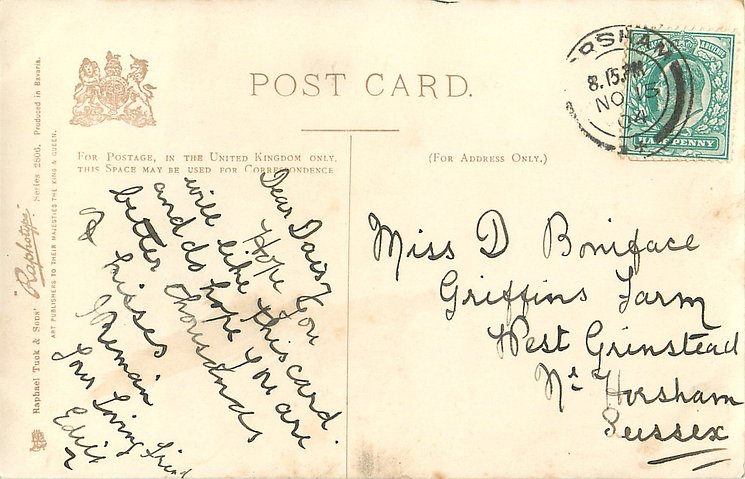 POST CARD.
FOR POSTAGE, IN THE UNITED KINGDOM ONLY,
THIS SPACE MAY BE USED FOR CORRESPONDENCE
(FOR ADDRESS ONLY.)
Raphael Tuck & Sons' "Raphotype" Series 2806. Produced in Bavaria.
ART PUBLISHERS TO THEIR MAJESTIES THE KING & QUEEN.
Dear Daisy
Hope you
will like this card.
and do hope you are
better thousands
of kisses
I Remain
your loving friend
Edith
Miss D Boniface
Griffins Farm
West Grinstead
Nr Horsham
Sussex
ORSHAM
8.15 PM
NO 15
04
HALFPENNY